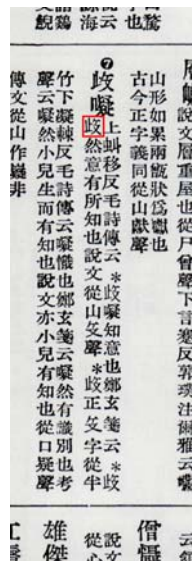 說層重屋也從尸曾聲下言蹇反郭璞注爾雅云巘
山形如累兩甑狀爲巘也
古今正字義同從山獻聲
❼歧㘈
上蚑移反毛詩傳云＊歧㘈知意也鄭玄箋云＊歧
歧然意有所知也說文從山支聲＊歧正支字從半
竹下㘈棘反毛詩傳云㘈懺也鄭玄箋云㘈然有識別也考
聲云㘈然小兒生而有知也說文亦小兒有知也從口疑聲
傳文從山作嶷非
僧懾
說文
從心
雄傑